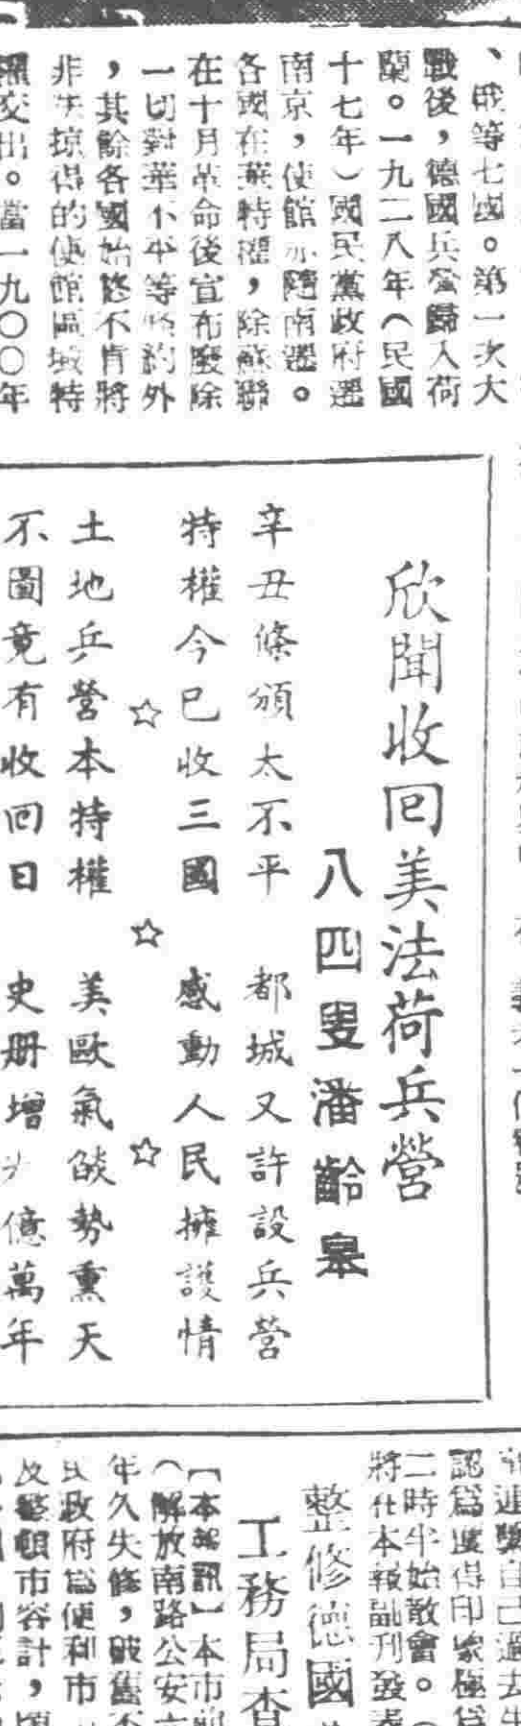 、俄等七國。第一次大
戰後，德國兵營歸入荷
蘭。一九二八年（民國
十七年）國民黨政府遷
南京，使館亦隨南遷。
各國在華特權，除蘇聯
在十月革命後宣布廢除
一切對華不平等條約外
，其餘各國始終不肯將
非法掠得的使館區域特
權交出。當一九〇〇年
欣聞收回美法荷兵營
八四叟潘齡皋
辛丑條頒太不平　都城又許設兵營
特權今已收三國　感動人民擁護情
☆　☆　☆
土地兵營本特權　美歐氣燄勢熏天
不圖竟有收回日　史册增光億萬年
認爲獲得印象極
二時半始散會。（
將在本報副刊發表
整修德國
工務局查
【本報訊】本市前
（解放南路公安六
年久失修，破舊不
民政府爲便利市
及整頓市容計，